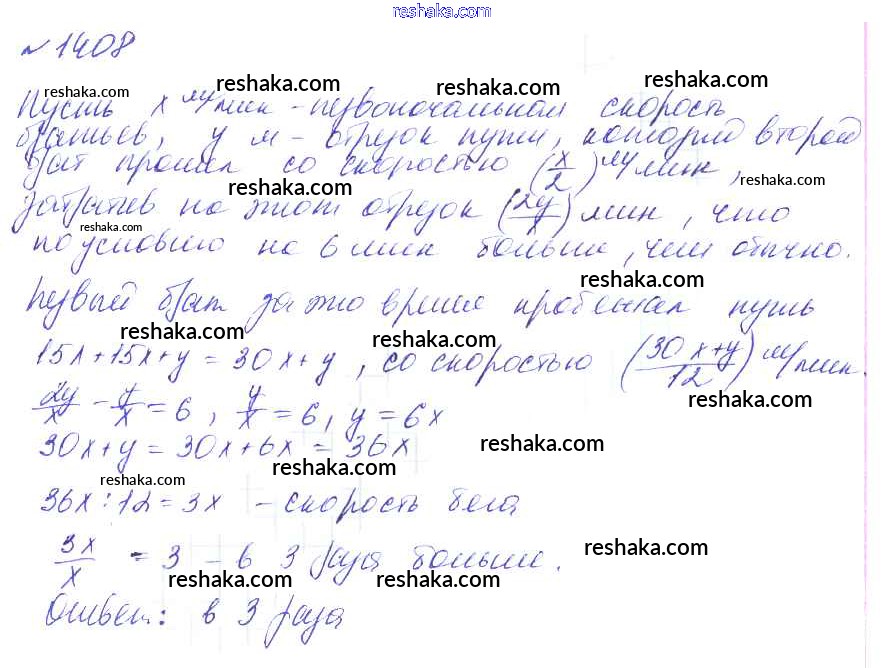 reshaka.com
№ 1408
reshaka.com
reshaka.com
reshaka.com
reshaka.com
Пусть x м/мин - первоначальная скорость
братьев, y м - отрезок пути, который второй
брат прошел со скоростью (x/2) м/мин,
reshaka.com
reshaka.com
затратив на этот отрезок (2y/x) мин, что
reshaka.com
по условию на 6 мин больше, чем обычно.
reshaka.com
Первый брат за это время пробежал путь
reshaka.com
reshaka.com
15x + 15x + y = 30x + y, со скоростью ((30x+y)/12) м/мин.
reshaka.com
2y/x - y/x = 6, y/x = 6, y = 6x
30x + y = 30x + 6x = 36x
reshaka.com
reshaka.com
reshaka.com
36x : 12 = 3x - скорость бега
reshaka.com
3x/x = 3 - в 3 раза больше.
reshaka.com
reshaka.com
Ответ: в 3 раза